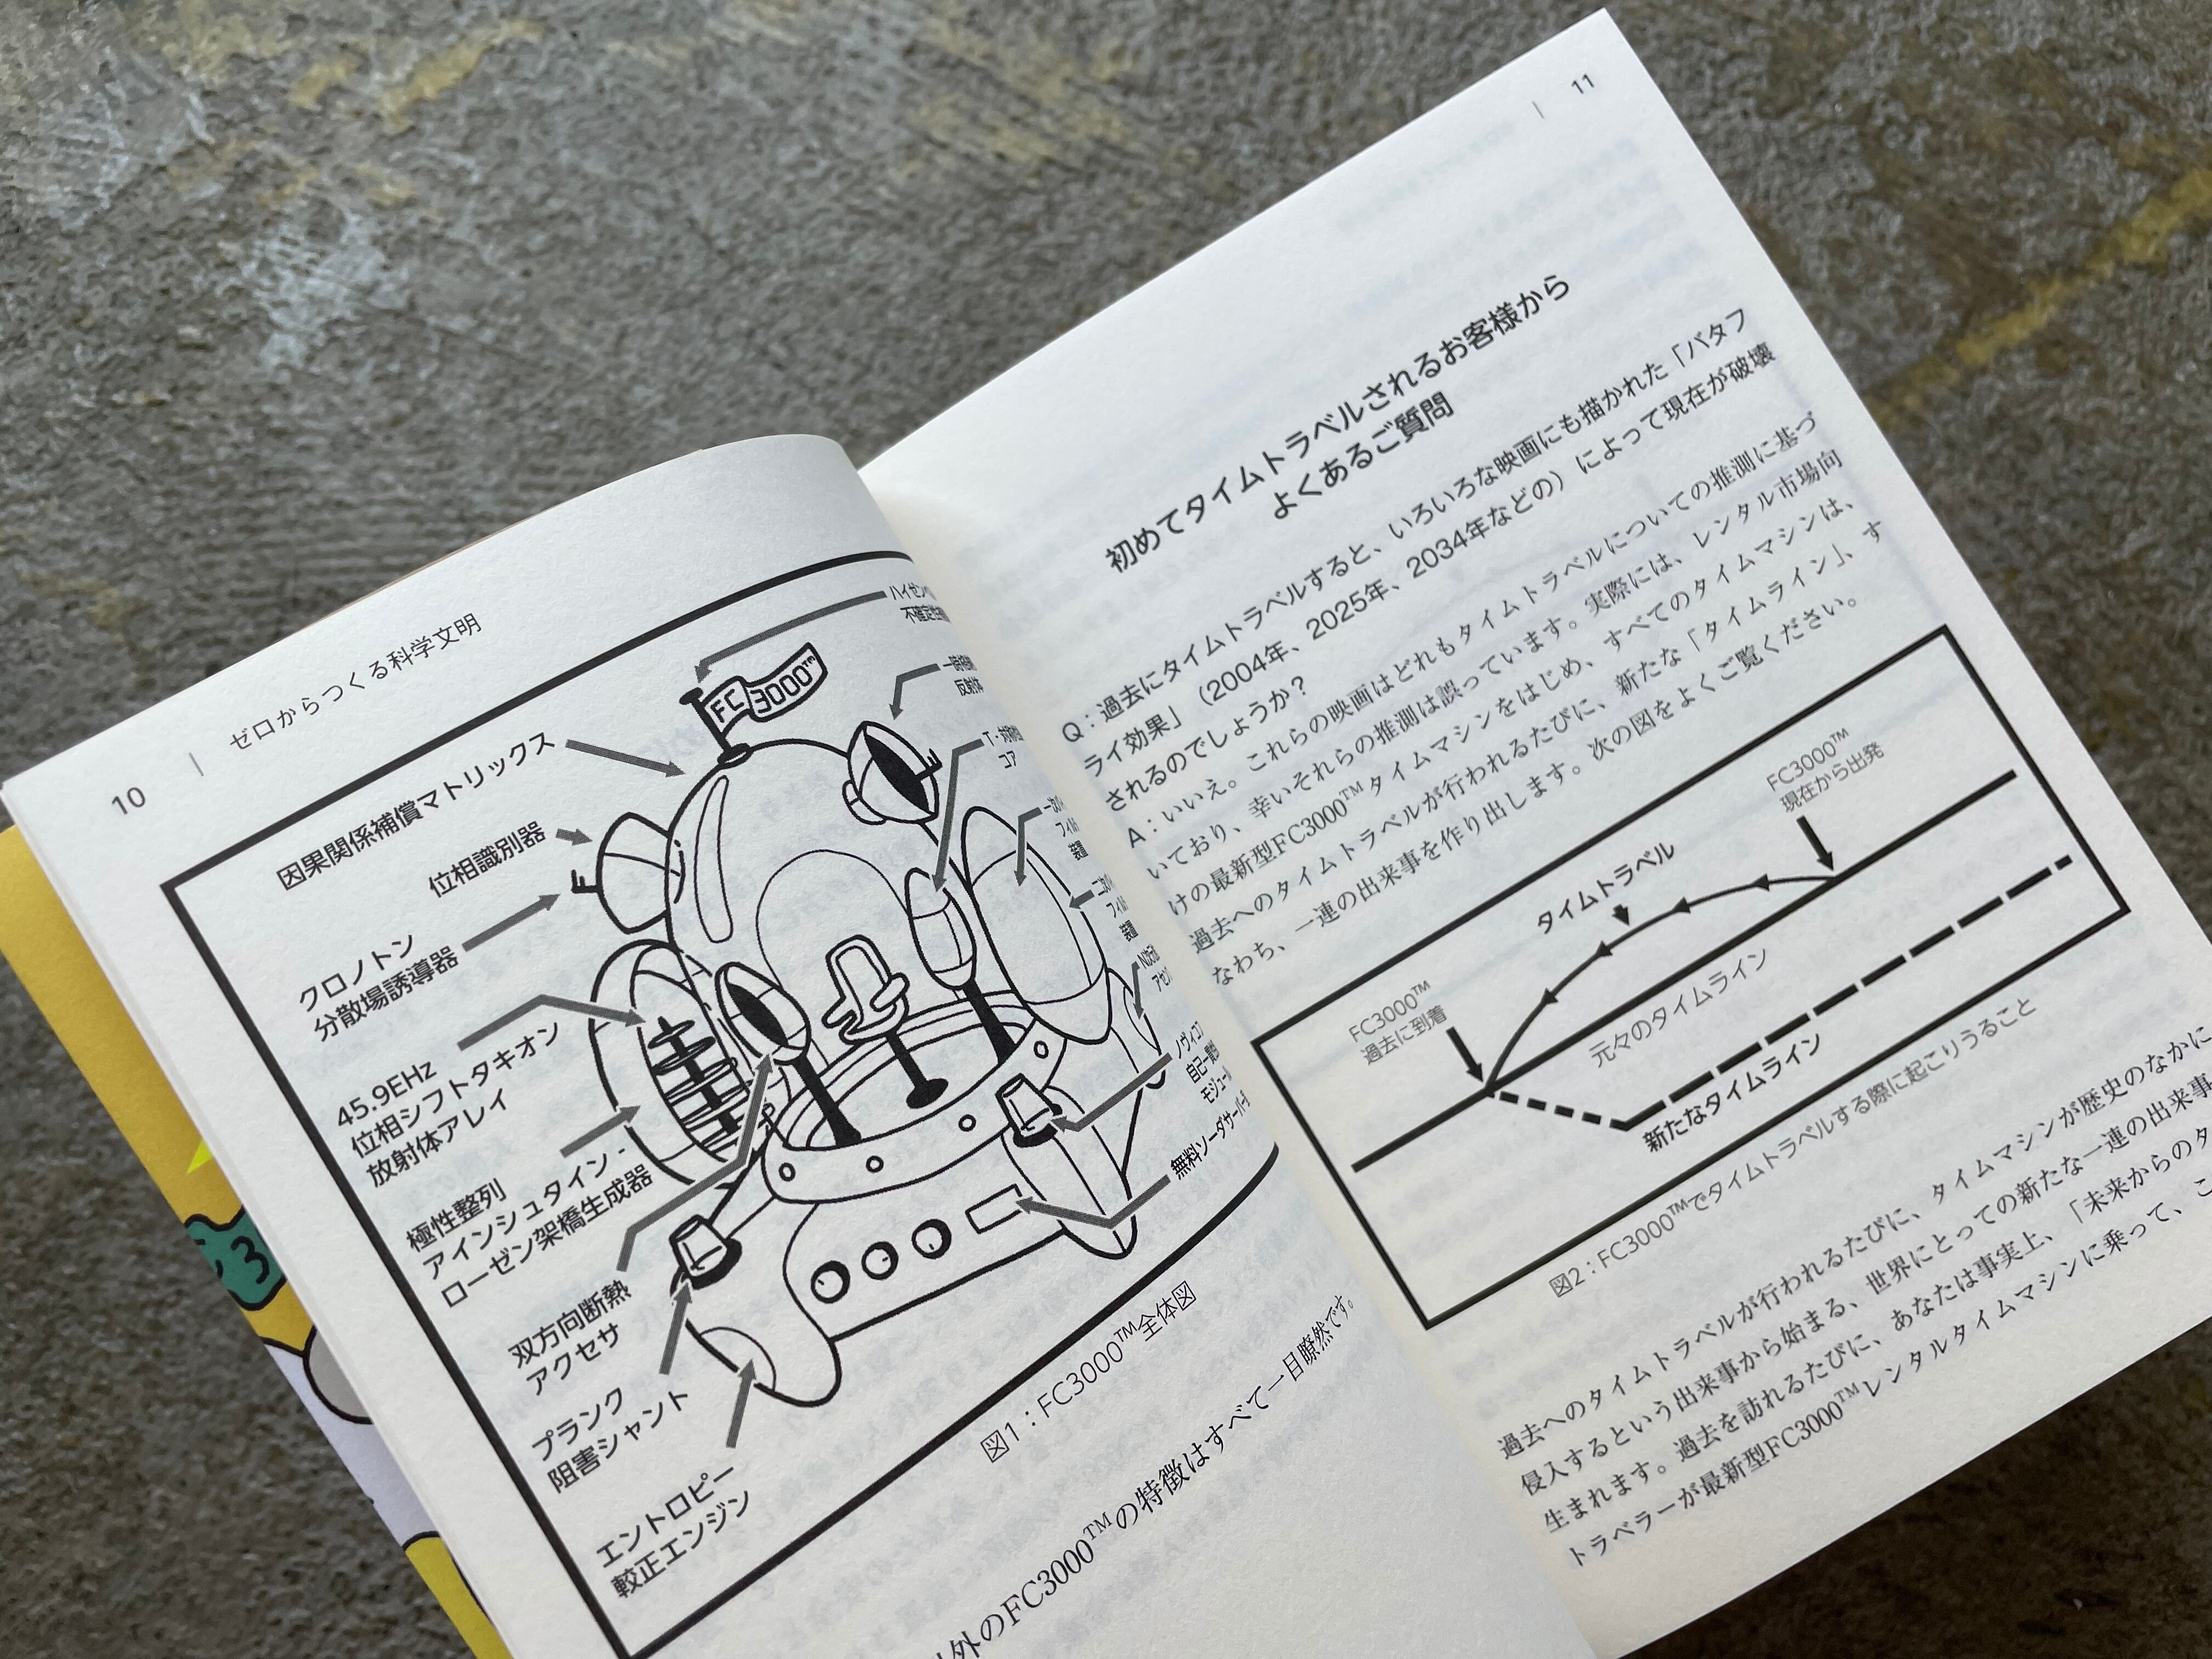 10 | ゼロからつくる科学文明
因果関係補償マトリックス
位相識別器
クロノトン
分散場誘導器
45.9EHz
位相シフトタキオン
放射体アレイ
極性整列
アインシュタイン-
ローゼン架橋生成器
双方向断熱
アクセサ
プランク
阻害シャント
エントロピー
較正エンジン
FC 3000™
反射体
コア
自己一貫性
無料ソーダサーバー
図1：FC3000™全体図
外のFC3000™の特徴はすべて一目瞭然です。
| 11
初めてタイムトラベルされるお客様から
よくあるご質問
Q：過去にタイムトラベルすると、いろいろな映画にも描かれた「バタフ
ライ効果」（2004年、2025年、2034年などの）によって現在が破壊
されるのでしょうか？
A：いいえ。これらの映画はどれもタイムトラベルについての推測に基づ
いており、幸いそれらの推測は誤っています。実際には、レンタル市場向
けの最新型FC3000™タイムマシンをはじめ、すべてのタイムマシンは、
過去へのタイムトラベルが行われるたびに、新たな「タイムライン」、す
なわち、一連の出来事を作り出します。次の図をよくご覧ください。
FC3000™
現在から出発
タイムトラベル
FC3000™
過去に到着
元々のタイムライン
新たなタイムライン
図2：FC3000™でタイムトラベルする際に起こりうること
過去へのタイムトラベルが行われるたびに、タイムマシンが歴史のなかに
侵入するという出来事から始まる、世界にとっての新たな一連の出来事
生まれます。過去を訪れるたびに、あなたは事実上、「未来からのタ
トラベラーが最新型FC3000™レンタルタイムマシンに乗って、こ